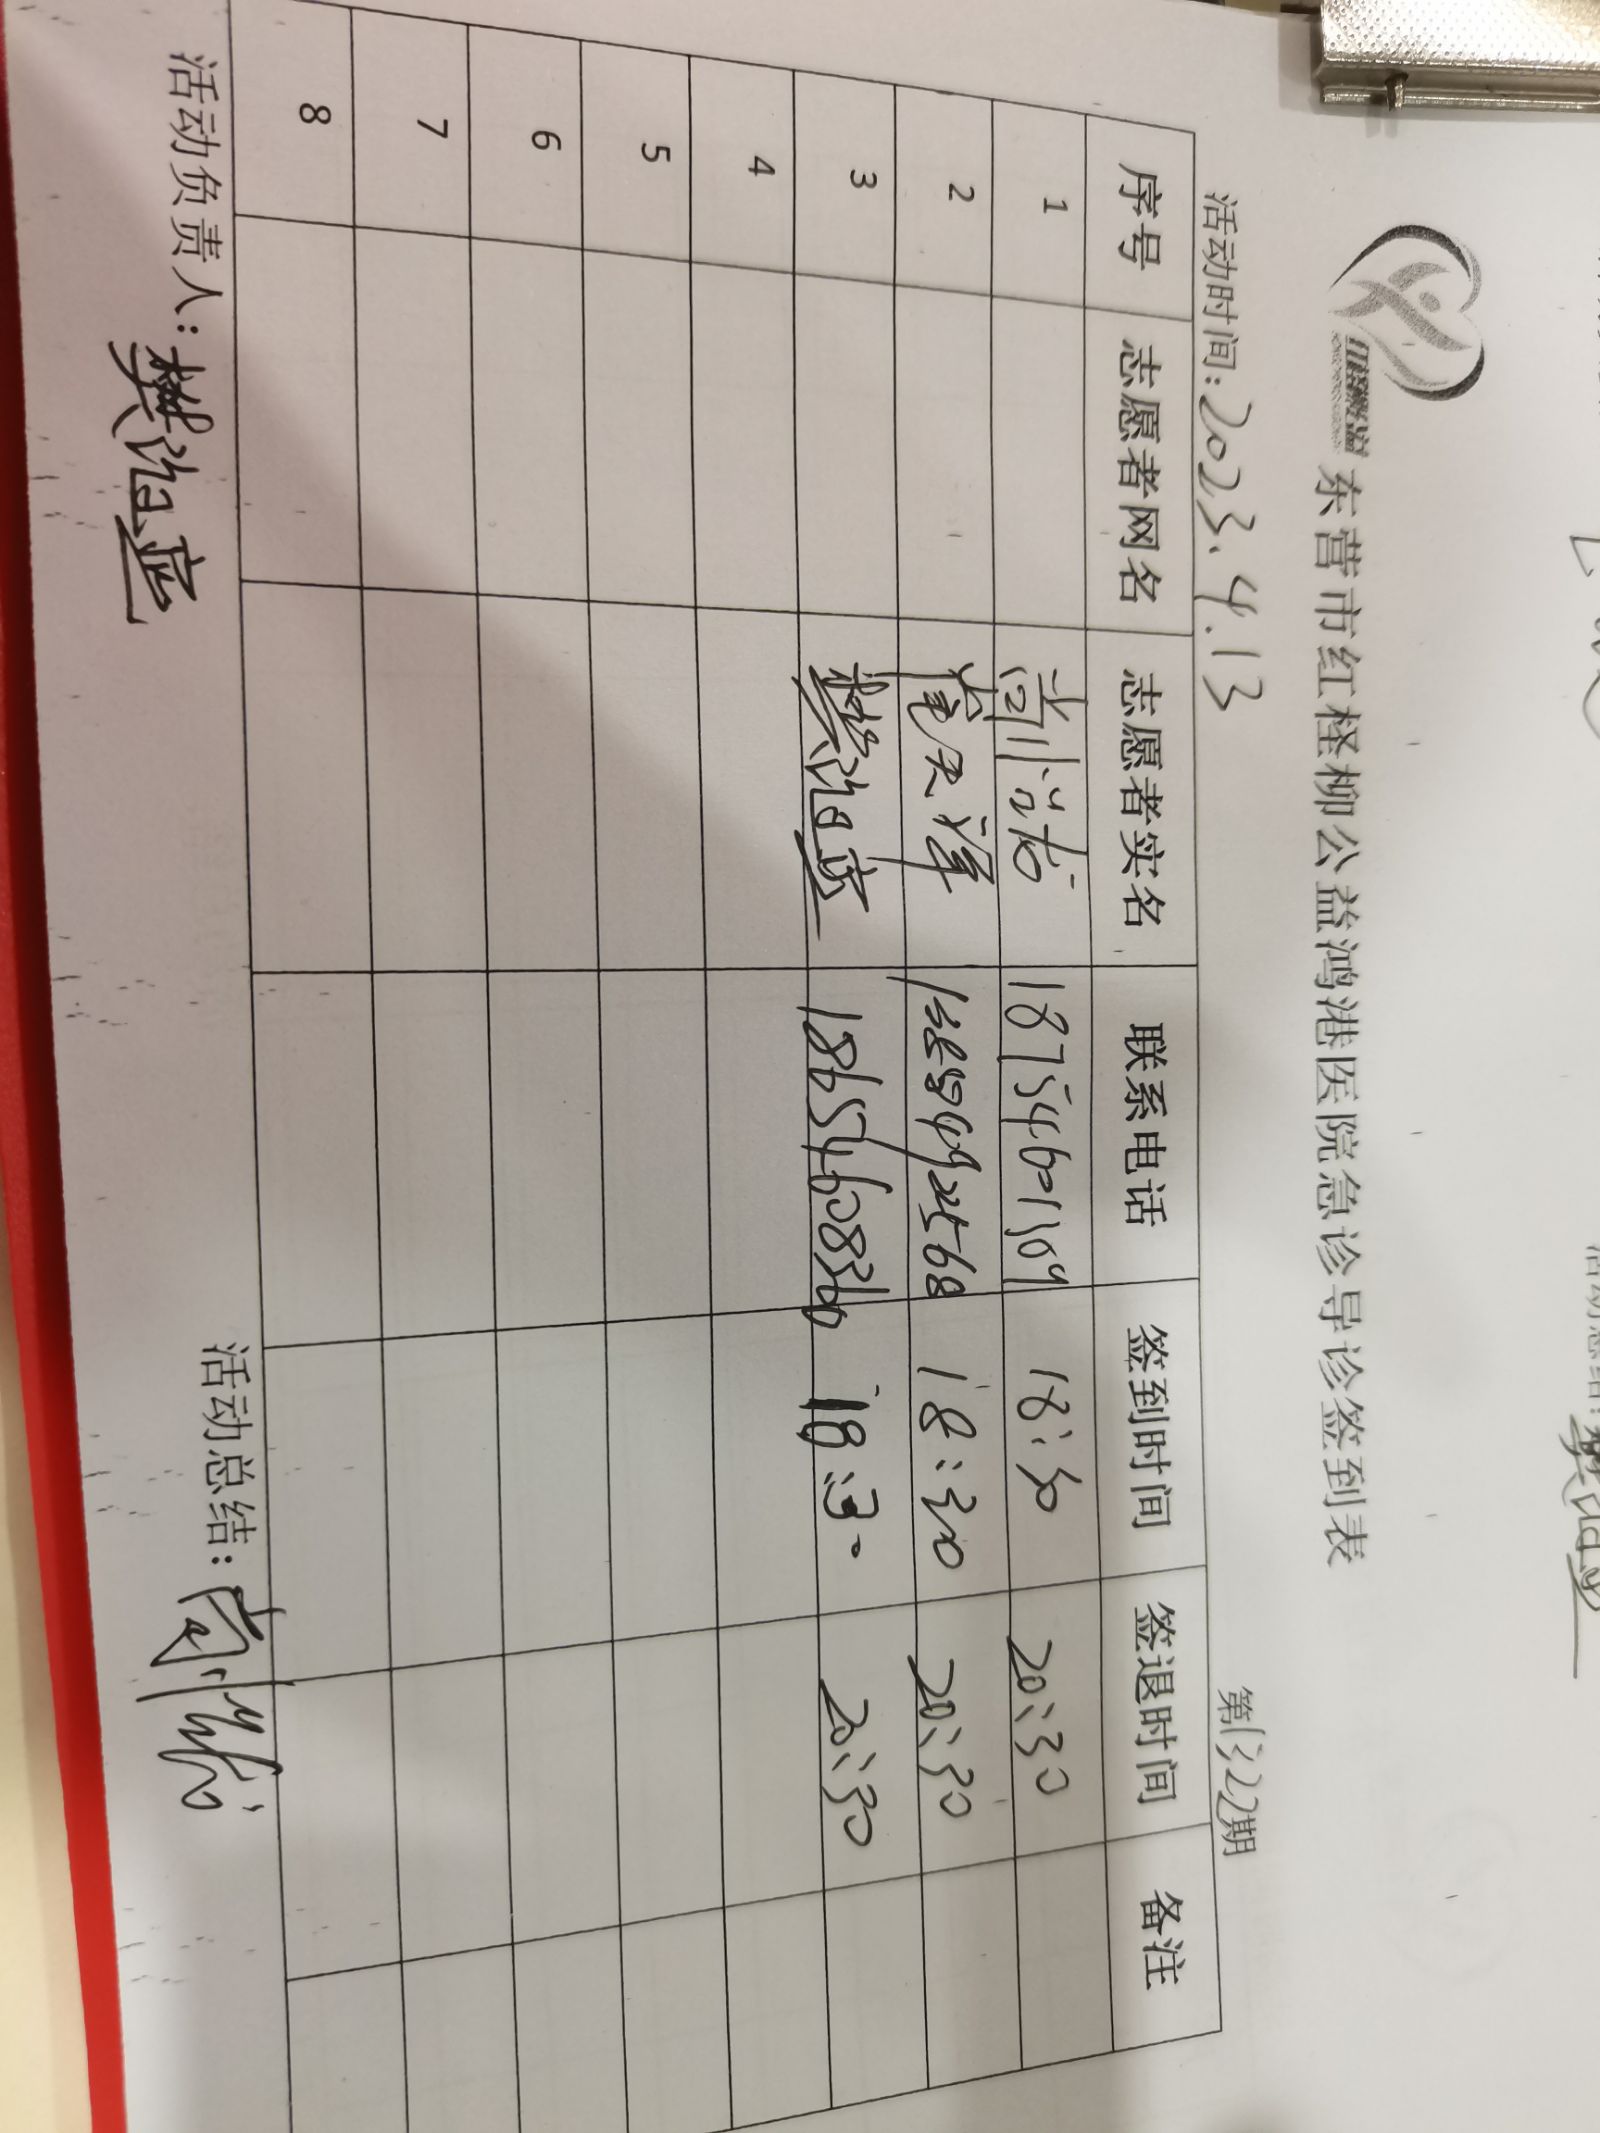 东营市红柽柳公益鸿港医院急诊导诊签到表
活动时间:2023.4.13 第1322期
序号 志愿者网名 志愿者实名 联系电话 签到时间 签退时间 备注
1 18754601309 18:30 20:30
2 18:30 20:30
3 樊治岳 18654608360 18:30 20:30
4
5
6
7
8
活动负责人: 活动总结: